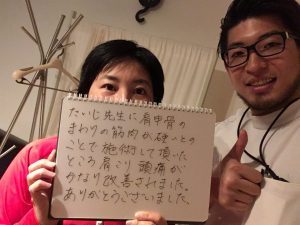 たいじ先生に肩甲骨の
まわりの筋肉が硬いとの
ことで施術して頂いた
ところ肩こり頭痛が
かなり改善されました。
ありがとうございました。